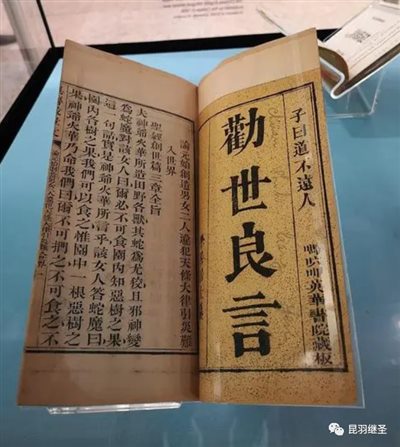 子曰道不遠人
勸世良言
英華書院藏板
論元始創造男女二人違犯天條大律引災難
入世界
聖經創世篇三章全旨
夫神爺火華所造田野各獸其蛇為尤狡且邪神變
為蛇魔對該女人曰爾必不可食園內知惡樹之果
這一句話實是神爺火華所言乎該女人答蛇魔曰
園內各樹之果我們可以食之惟園中一根惡樹之
果神爺火華乃命我們因爾不可捫之不可食之不
昆羽继圣